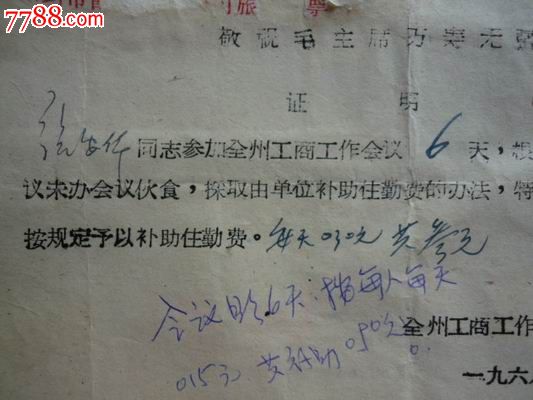 7788.com
票
敬祝毛主席万寿无
证明
同志参加全州工商工作会议6天，根
议未办会议伙食，采取由单位补助住勤费的办法，特
按规定予以补助住勤费。每天0.30元 共叁元
会议日6天，按每人每天
0.15元，共补助0.90元。
全州工商工作
一九六